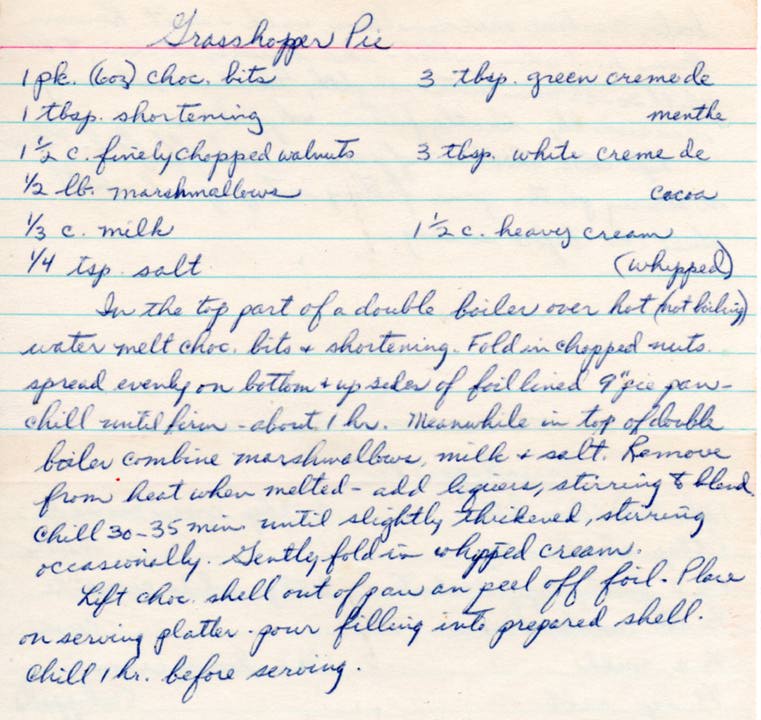 Grasshopper Pie
1 pk. (6oz) choc. bits 3 tbsp. green creme de
1 tbsp. shortening menthe
1 1/2 c. finely chopped walnuts 3 tbsp. white creme de
1/2 lb. marshmallows cocoa
1/3 c. milk 1 1/2 c. heavy cream
1/4 tsp. salt (whipped)
In the top part of a double boiler over hot (not boiling)
water melt choc. bits + shortening. Fold in chopped nuts.
spread evenly on bottom + up sides of foil lined 9" pie pan -
chill until firm - about 1 hr. Meanwhile in top of double
boiler combine marshmallows, milk + salt. Remove
from heat when melted - add liquers, stirring to blend.
Chill 30-35 min until slightly thickened, stirring
occasionally. Gently fold in whipped cream.
Lift choc. shell out of pan an peel off foil. Place
on serving platter - pour filling into prepared shell.
Chill 1 hr. before serving.